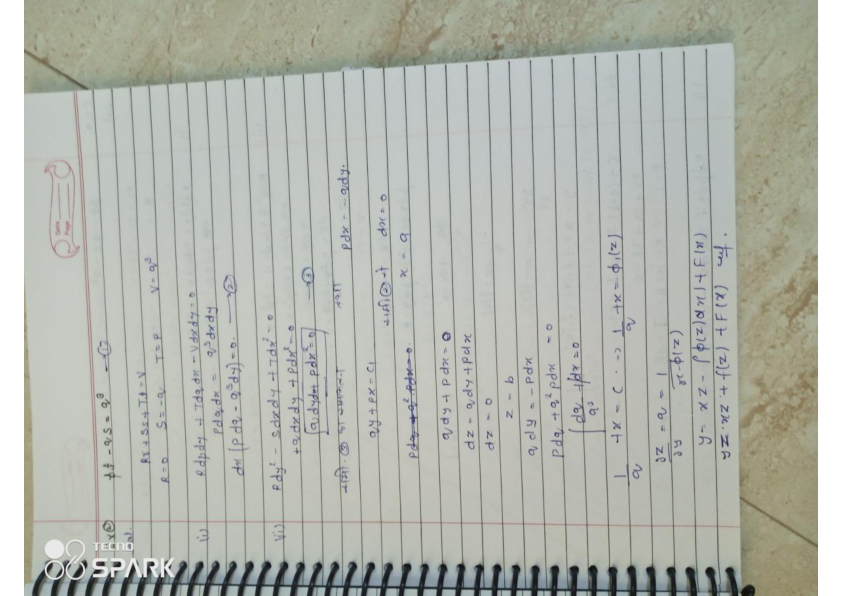 pt - qs = q³ —①
Rr + Ss + Tt = V
R = 0 S = -q T = P V = q³
i) Rdpdy + Tdqdx - Vdxdy = 0
Pdqdx = q³dxdy
dx(Pdq - q³dy) = 0. —②
ii) Rdy² - Sdxdy + Tdx² = 0
+qdxdy + Pdx² = 0
qdydx + Pdx² = 0 —③
समी. ③ का समाकलन Pdx = -qdy.
qy + px = c₁
समी② से dx = 0
x = a
qdy + pdx = 0
dz = qdy + pdx
dz = 0
z = b
qdy = -Pdx
Pdq + q²pdx = 0
∫dq/q² + ∫dx = 0
1/q + x = C. → 1/q + x = φ₁(z)
∂z/∂y = q = 1/x-φ(z)
y = xz - ∫φ(z)d(x) + F(x)
yz. xz + f(z) + F(x)
Date
Page
TECNO
SPARK